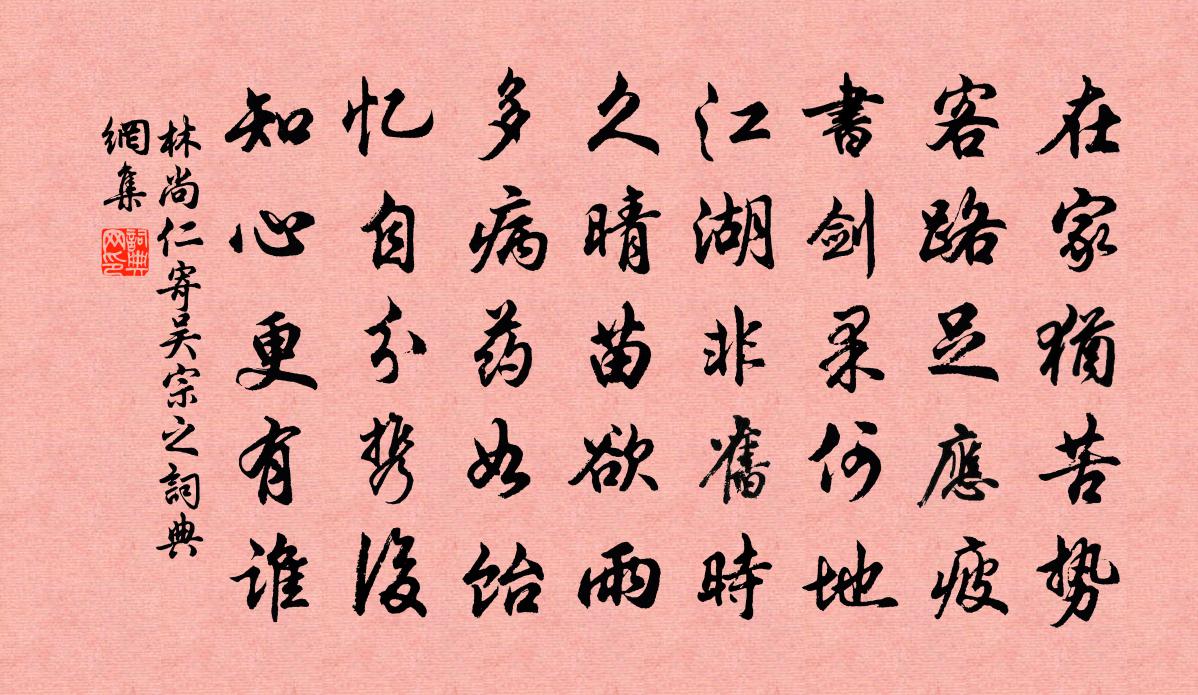 在家猶苦势
客路足應疲
書剑果何地
江湖非舊時
久晴苗欲雨
多病药如饴
忆自分携後
知心更有谁
林尚仁寄吴宗之詞典
網集
詞典
网印